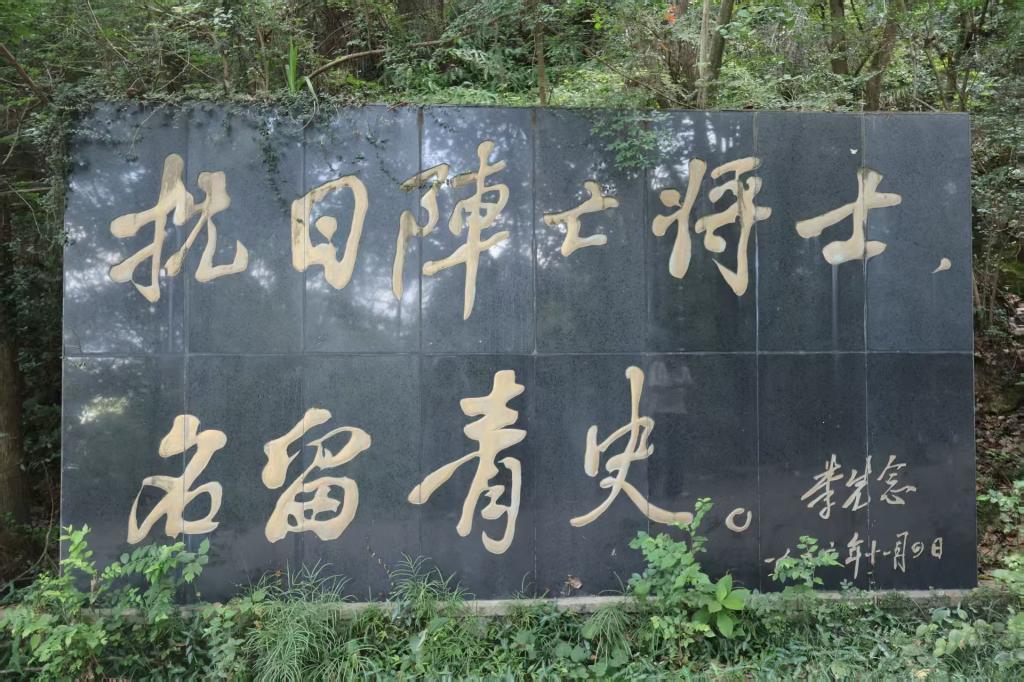 抗日陣亡将士，
名留青史。
李先念
一九八六年十一月四日